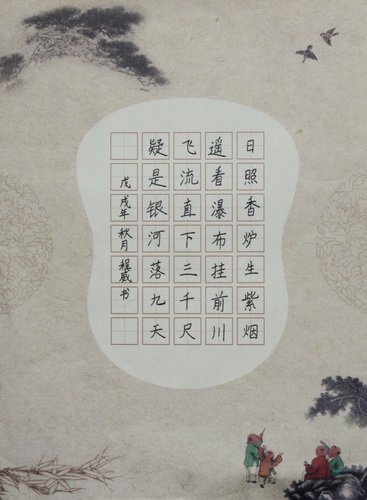 日照香炉生紫烟
遥看瀑布挂前川
飞流直下三千尺
疑是银河落九天
戊戌年秋月程威书